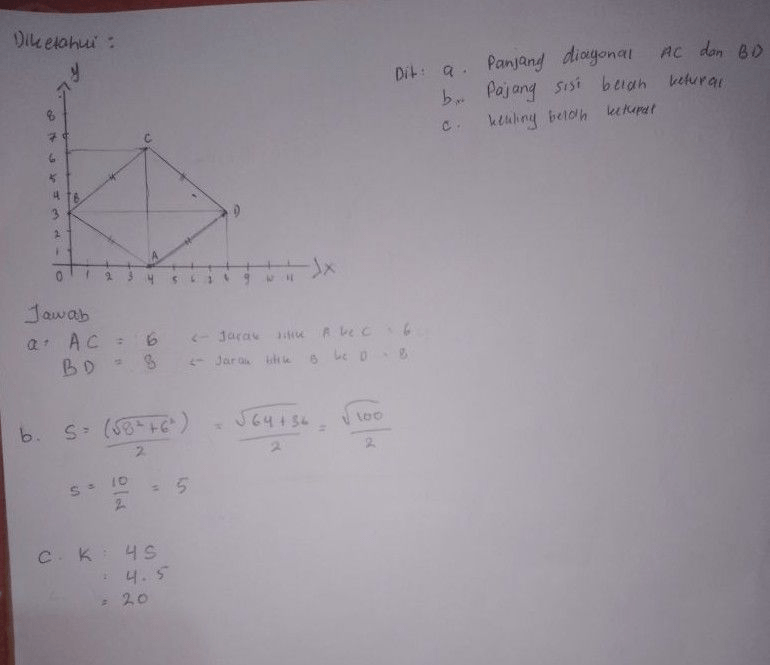 Diketahui :
Dit : a. Panjang diagonal AC dan BD
b. Pajang sisi belah ketupat
c. keliling belah ketupat
y
8
7
6
5
4
3
2
1
C
B
D
A
0 1 2 3 4 5 6 7 8 9 10 11 x
Jawab
a. AC = 6 <- Jarak titik A ke C = 6
BD = 8 <- Jarak titik B ke D = 8
b. S = (√8²+6²)/2 = √64+36/2 = √100/2
s = 10/2 = 5
c. K : 4S
: 4.5
= 20